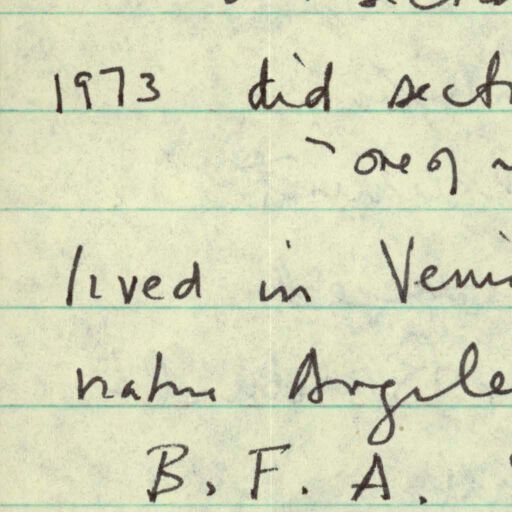 1973 did secti
one of
lived in Veni
native Angele
B. F. A.